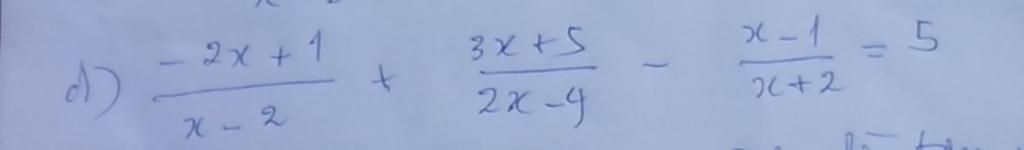 d) \frac{-2x+1}{x-2} + \frac{3x+5}{2x-4} - \frac{x-1}{x+2} = 5